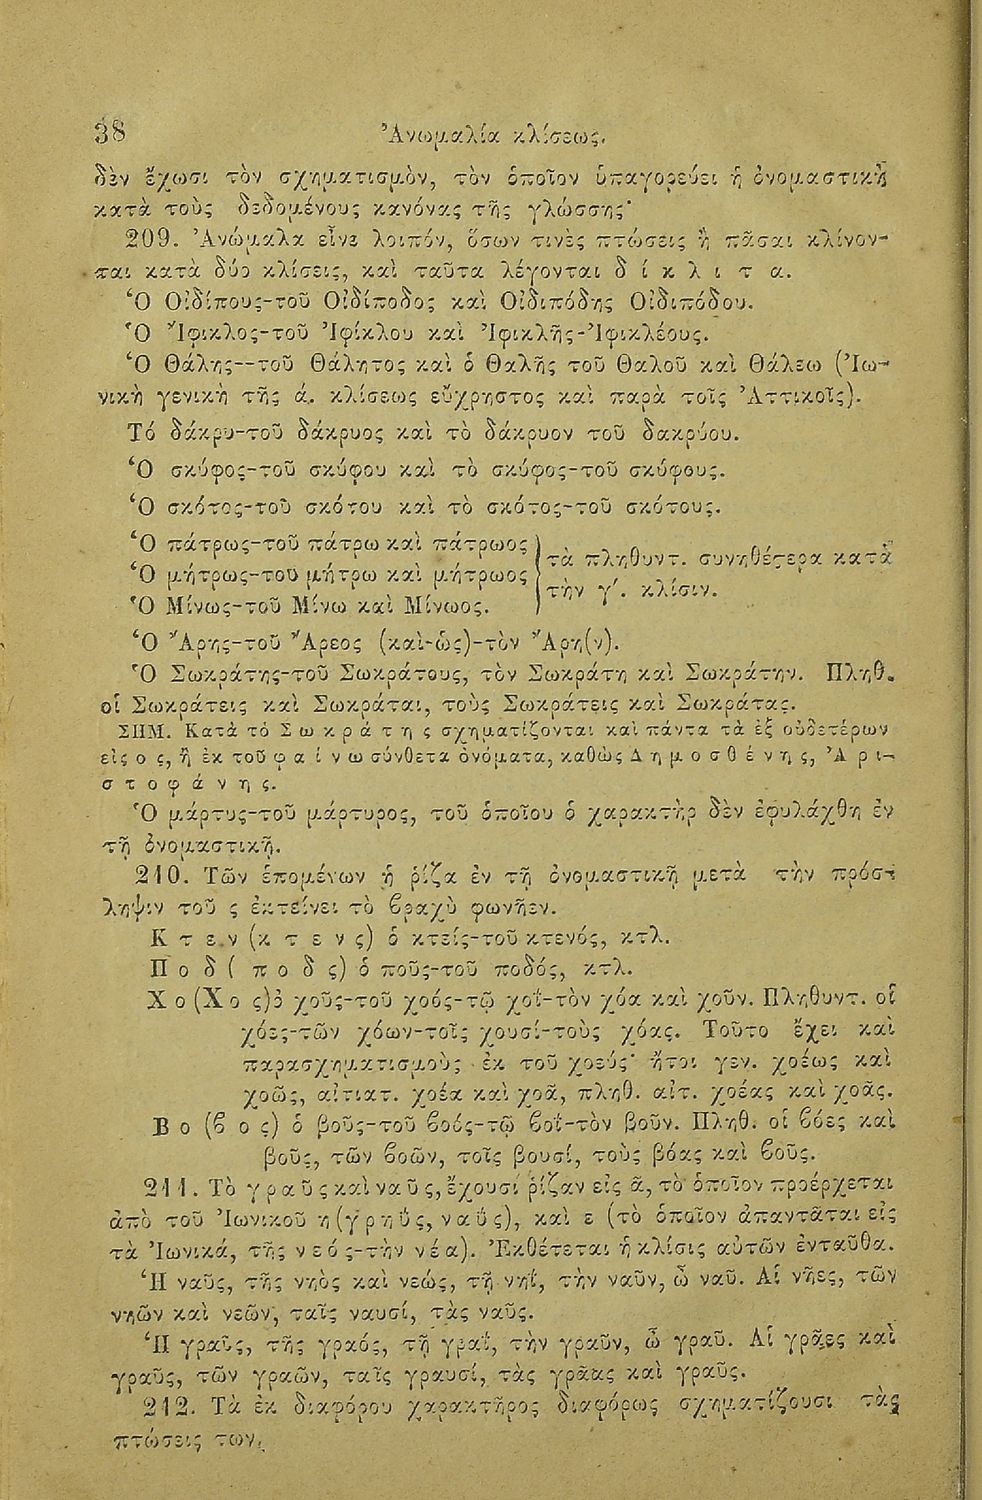 38 Ἀνωμαλία κλίσεως.
δὲν ἔχωσι τὸν σχηματισμὸν, τὸν ὁποῖον ὑπαγορεύει ἡ ὀνομαστικὴ
κατὰ τοὺς δεδομένους κανόνας τῆς γλώσσης·
209. Ἀνώμαλα εἶνε λοιπόν, ὅσων τινὲς πτώσεις ἢ πᾶσαι κλίνον-
ται κατὰ δύο κλίσεις, καὶ ταῦτα λέγονται δ ί κ λ ι τ α.
Ὁ Οἰδίπους-τοῦ Οἰδίποδος καὶ Οἰδιπόδης Οἰδιπόδου.
Ὁ Ἴφικλος-τοῦ Ἰφίκλου καὶ Ἰφικλῆς-Ἰφικλέους.
Ὁ Θάλης--τοῦ Θάλητος καὶ ὁ Θαλῆς τοῦ Θαλοῦ καὶ Θάλεω (Ἰω-
νικὴ γενικὴ τῆς ά. κλίσεως εὔχρηστος καὶ παρὰ τοῖς Ἀττικοῖς).
Τό δάκρυ-τοῦ δάκρυος καὶ τὸ δάκρυον τοῦ δακρύου.
Ὁ σκύφος-τοῦ σκύφου καὶ τὸ σκύφος-τοῦ σκύφους.
Ὁ σκότος-τοῦ σκότου καὶ τὸ σκότος-τοῦ σκότους.
Ὁ πάτρως-τοῦ πάτρω καὶ πάτρωος
Ὁ μήτρως-τοῦ μήτρω καὶ μήτρωος
Ὁ Μίνως-τοῦ Μίνω καὶ Μίνωος.
τὰ πληθυντ. συνηθέστερα κατὰ
τὴν γ΄. κλίσιν.
Ὁ Ἄρης-τοῦ Ἄρεος (καὶ-ως)-τὸν Ἄρη(ν).
Ὁ Σωκράτης-τοῦ Σωκράτους, τὸν Σωκράτη καὶ Σωκράτην. Πληθ.
οἱ Σωκράτεις καὶ Σωκράται, τοὺς Σωκράτεις καὶ Σωκράτας.
ΣΗΜ. Κατὰ τό Σ ω κ ρ ά τ η ς σχηματίζονται καὶ πάντα τὰ ἐξ οὐδετέρων
εἰς ο ς, ἢ ἐκ τοῦ φ α ί ν ω σύνθετα ὀνόματα, καθὼς Δ η μ ο σ θ έ ν η ς, Ἀ ρ ι-
σ τ ο φ ά ν η ς.
Ὁ μάρτυς-τοῦ μάρτυρος, τοῦ ὁποίου ὁ χαρακτὴρ δὲν ἐφυλάχθη ἐν
τῇ ὀνομαστικῇ.
210. Τῶν ἑπομένων ἡ ῥίζα ἐν τῇ ὀνομαστικῇ μετὰ τὴν πρόσ-
ληψιν τοῦ ς ἐκτείνει τὸ ϐραχὺ φωνῆεν.
Κ τ ε ν (κ τ ε ν ς) ὁ κτείς-τοῦ κτενός, κτλ.
Π ο δ ( π ο δ ς) ὁ ποῦς-τοῦ ποδός, κτλ.
Χ ο (Χ ο ς) ὁ χοῦς-τοῦ χοός-τῷ χοΐ-τὸν χόα καὶ χοῦν. Πληθυντ. οἱ
χόες-τῶν χόων-τοῖς χουσί-τοὺς χόας. Τοῦτο ἔχει καὶ
παρασχηματισμοὺς ἐκ τοῦ χοεύς· ἤτοι γεν. χοέως καὶ
χοῶς, αἰτιατ. χοέα καὶ χοᾶ, πληθ. αἰτ. χοέας καὶ χοᾶς.
Β ο (ϐ ο ς) ὁ βοῦς-τοῦ ϐοός-τῷ ϐοΐ-τὸν βοῦν. Πληθ. οἱ ϐόες καὶ
βοῦς, τῶν ϐοῶν, τοῖς βουσί, τοὺς βόας καὶ ϐοῦς.
211. Τὸ γ ρ α ῦ ς καὶ ν α ῦ ς, ἔχουσι ῥίζαν εἰς ᾶ, τὸ ὁποῖον προέρχεται
ἀπὸ τοῦ Ἰωνικοῦ η (γ ρ η ῦ ς, ν α ῦ ς), καὶ ε (τὸ ὁποῖον ἀπαντᾶται εἰς
τὰ Ἰωνικά, τῆς ν ε ό ς-τὴν ν έ α). Ἐκθέτεται ἡ κλίσις αὐτῶν ἐνταῦθα.
Ἡ ναῦς, τῆς νηὸς καὶ νεώς, τῇ νηΐ, τὴν ναῦν, ὦ ναῦ. Αἱ νῆες, τῶν
νηῶν καὶ νεῶν, ταῖς ναυσί, τὰς ναῦς.
Ἡ γραῦς, τῆς γραός, τῇ γραΐ, τὴν γραῦν, ὦ γραῦ. Αἱ γρᾶες καὶ
γραῦς, τῶν γραῶν, ταῖς γραυσί, τὰς γρᾶας καὶ γραῦς.
212. Τὰ ἐκ διαφόρου χαρακτῆρος διαφόρως σχηματίζουσι τὰς
πτώσεις των.